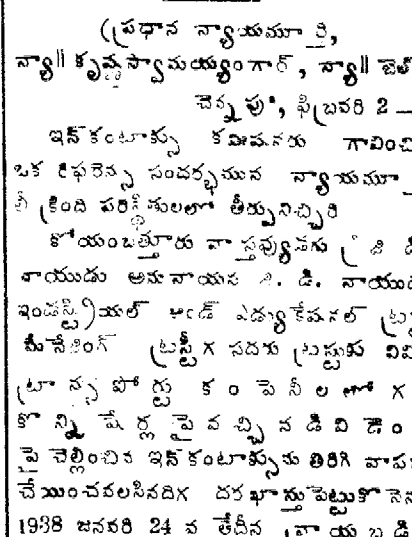 (ప్రధాన న్యాయమూర్తి,
న్యా॥ కృష్ణస్వామయ్యంగార్, న్యా॥
చెన్నపురి, ఫిబ్రవరి 2 —
ఇన్‌కంటాక్సు కమీషనరు గావించి
ఒక రిఫరెన్సు సందర్భమున న్యాయమూ
క్రింది పరిస్థితులలో తీర్పునిచ్చిరి
కోయంబత్తూరు వాస్తవ్యుడగు జి డి
నాయుడు అనునాయన జి. డి. నాయుడు
ఇండస్ట్రియల్ అండ్ ఎడ్యుకేషనల్ ట్ర
మేనేజింగ్ ట్రస్టీగ సదరు ట్రస్టుకు వివి
ట్రాన్స్పోర్టు కంపెనీలలో గ
కొన్ని షేర్లపై వచ్చిన డివిడెం
పై చెల్లించిన ఇన్‌కంటాక్సును తిరిగి వాపసు
చేయించవలసినదిగ దరఖాస్తుపెట్టుకొనెను
1938 జనవరి 24 వ తేదీన